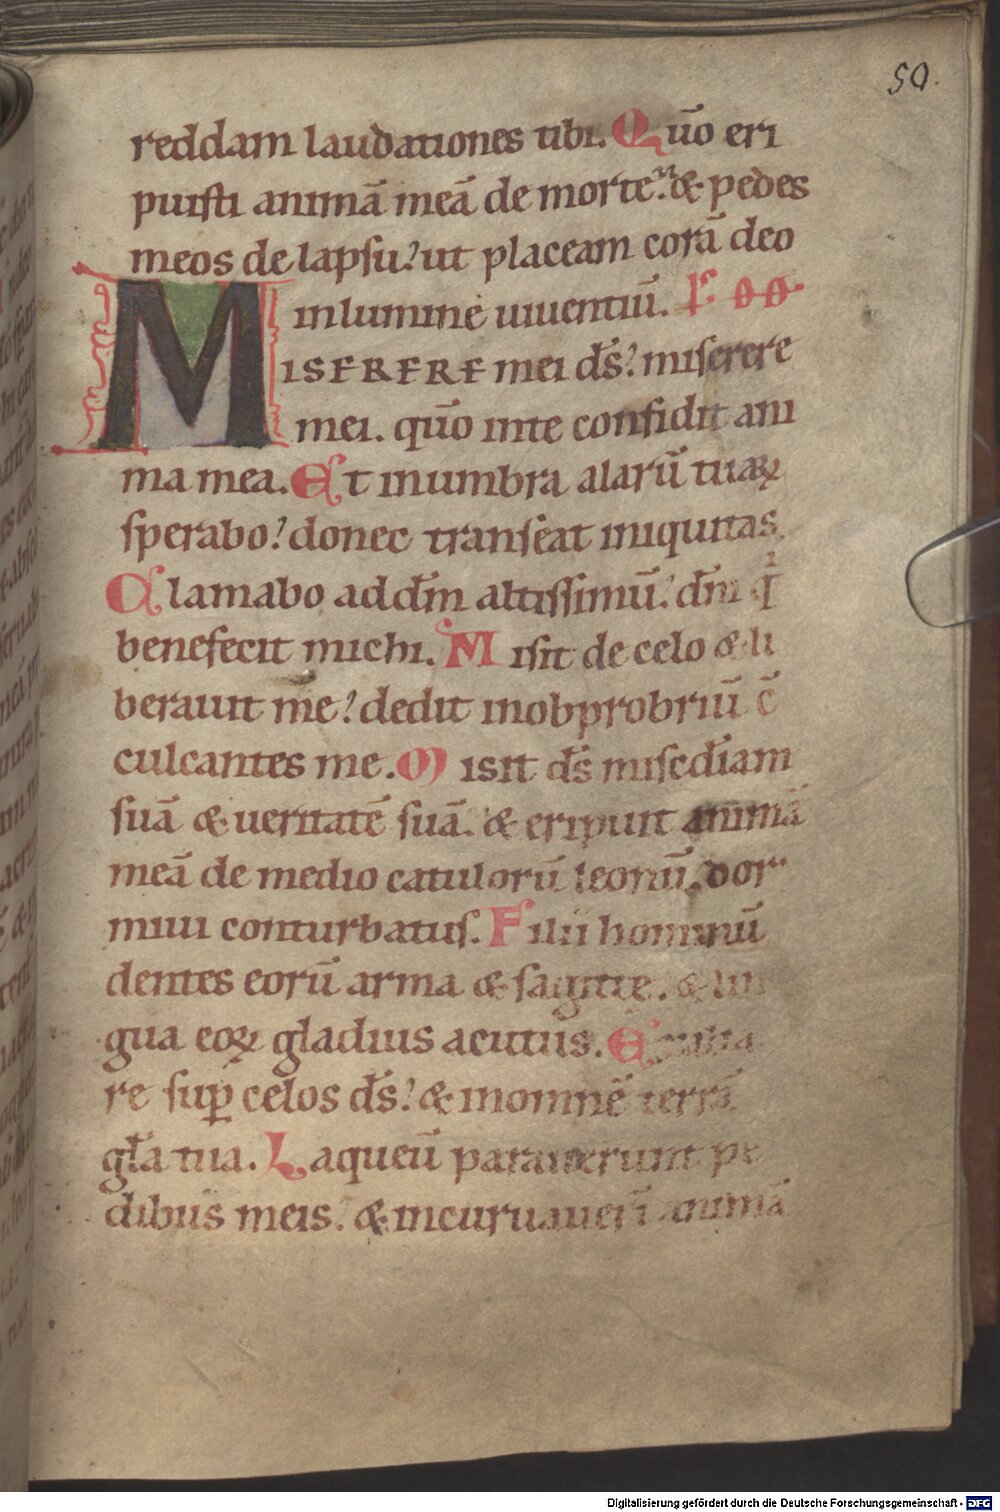 50.
reddam laudationes tibi. Qūo eri
puisti animā meā de morte. & pedes
meos de lapsu? ut placeam corā deo
in lumine uiuentiū.
MISERERE mei d̄s? miserere
mei. qūo in te confidit ani
ma mea. Et in umbra alarū tuaꝝ
sperabo? donec transeat iniquitas.
Clamabo ad dm̄ altissimū? dm̄ qi
benefecit michi. Misit de celo & li
berauit me? dedit in obprobriū c̄
culcantes me. Misit d̄s misēdiam
suā & ueritatē suā. & eripuit animā
meā de medio catulorū leonū. dor
miui conturbatus. Filii hominū
dentes eorū arma & sagittę. & lin
gua eoꝝ gladius acutus. Exalta
re suꝑ celos d̄s? & in omnē terrā
gl̄a tua. Laqueū parauerunt pe
dibus meis. & incuruauer̄t animā
Digitalisierung gefördert durch die Deutsche Forschungsgemeinschaft - DFG